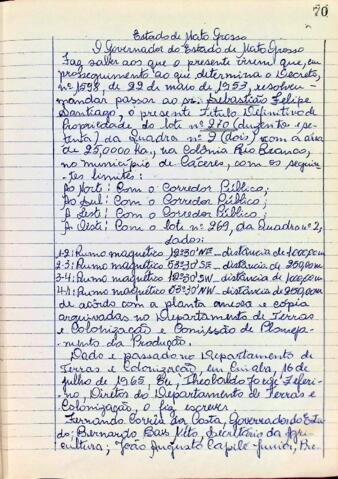 70
Estado de Mato Grosso
O Governador do Estado de Mato Grosso
Faz saber aos que o presente virem que, em
prosseguimento ao que determina o Decreto,
nº 1598, de 22 de maio de 1953, resolveu
mandar passar ao snr. Sebastião Felipe
Santiago, o presente Titulo Definitivo de
Propriedade do lote nº 270 (duzentos e se-
tenta) da Quadra nº 2 (dois), com a área
de 25,0000 ha, na Colonia Rio Branco,
no municipio de Cáceres, com os seguin-
tes limites:
Ao Norte: Com o Corredor Público;
Ao Sul: Com o Corredor Público;
A Leste: Com o Corredor Público;
A Oeste: Com o lote nº 269, da Quadra nº 2,
lados:
1-2: Rumo magnético NE - distância de
2-3: Rumo magnético SE - distância de 250,00 m
3-4: Rumo magnético SW - distância de
4-1: Rumo magnético NW - distância de 250,00 m
de acôrdo com a planta anexa e cópia
arquivadas no Departamento de Terras
e Colonização e Comissão de Planeja-
mento da Produção.
Dado e passado no Departamento de
Terras e Colonização, em Cuiabá, 16 de
julho de 1965. Eu, Theobaldo Jorge Zeferi-
no, Diretor do Departamento de Terras e
Colonização, o fiz escrever
Fernando Corrêa da Costa, Governador do Esta-
do; Bernardo Bais Neto, Secretário da Agri-
cultura; João Augusto Capilé Junior, Pre-